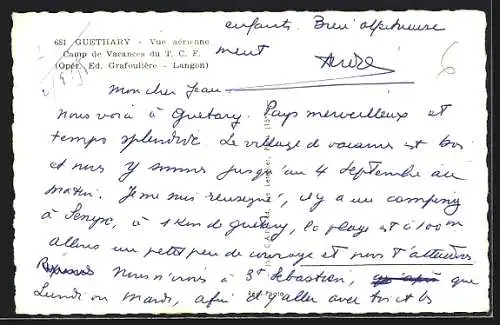 enfants. Bien alpineuse
ment
André
681 GUETHARY - Vue aérienne
Camp de Vacances du T. C. F.
(Opér. Ed. Grafoulière - Langon)
Mon cher Jean
nous voià à Guetary. Pays merveilleux et
temps splendide. Le village de vacances est bon
et nous y sommes jusqu'au 4 Septembre au
matin. Je me suis renseigné, il y a un camping
à Senyx, à 1 Km de Guetary, la plage est à 100m
allons un petit peu de courage et nous t'attendons
Nous n'irons à St Sébastien, que
Lundi ou Mardi, afin d'y aller avec toi et les